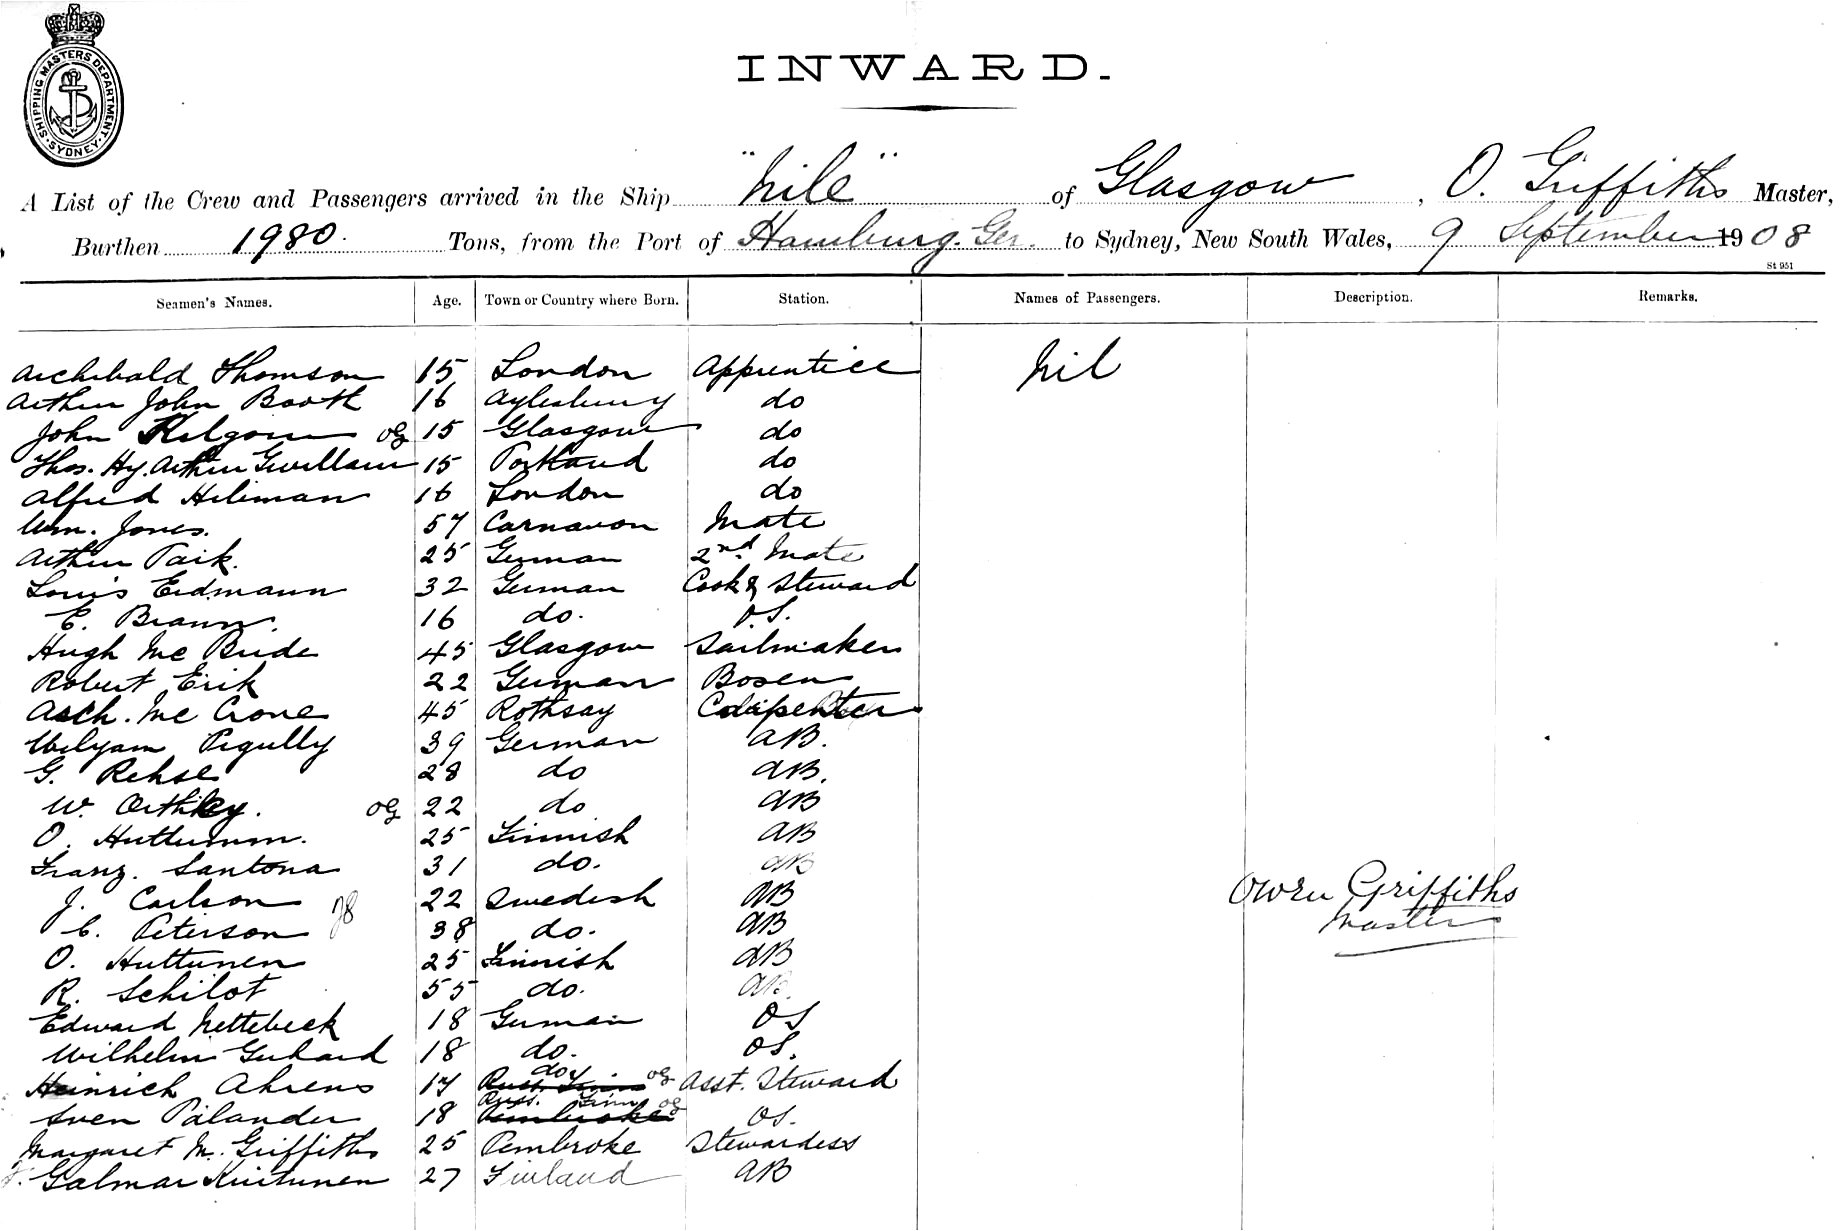 SHIPPING MASTERS DEPARTMENT. SYDNEY
INWARD.
A List of the Crew and Passengers arrived in the Ship "Nile" of Glasgow, O. Griffiths Master,
Burthen 1980. Tons, from the Port of Hamburg. Ger. to Sydney, New South Wales, 9 September 1908
St 951
Seamen's Names. Age. Town or Country where Born. Station. Names of Passengers. Description. Remarks.
Archibald Thomson 15 London Apprentice Nil
Arthur John Booth 16 Aylesbury do
John Kilgour OG 15 Glasgow do
Thos. Hy. Arthur Gwillam 15 Portland do
Alfred Hiliman 16 London do
Wm. Jones. 57 Carnavon Mate
Arthur Paik. 25 German 2nd Mate
Louis Erdmann 32 German Cook & Steward
E. Braun. 16 do. O.S.
Hugh Mc Bride 45 Glasgow Sailmaker
Robert Erik 22 German Bosen
Arch. Mc Crone 45 Rothsay Carpenter
Wilyam Pigully 39 German AB.
G. Rehse 28 do AB.
W. OG 22 do AB
O. 25 Finnish AB
Franz. Santona 31 do. AB
J. Carlson 22 Swedish AB
C. Peterson 38 do. AB
Owen Griffiths
Master
O. Huttunen 25 Finnish AB
R. Schilot 55 do. AB.
Edward Nettebeck 18 German OS
Wilhelm Gerhard 18 do. OS.
Heinrich Ahrens 17 do OG Asst. Steward
Sven Palander 18 Russ. Finn OG OS.
Margaret M. Griffiths 25 Pembroke Stewardess
Galmar Kiutunen 27 Finland AB